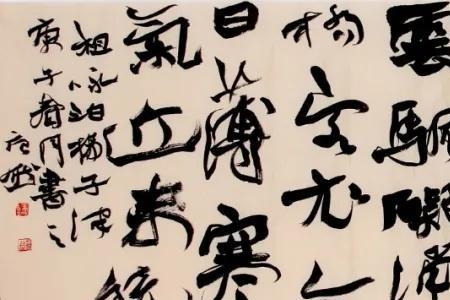 雲帆礙浦
橋客衣今
日薄寒
氣近来饒
祖咏泊揚子津
庚子春月書之